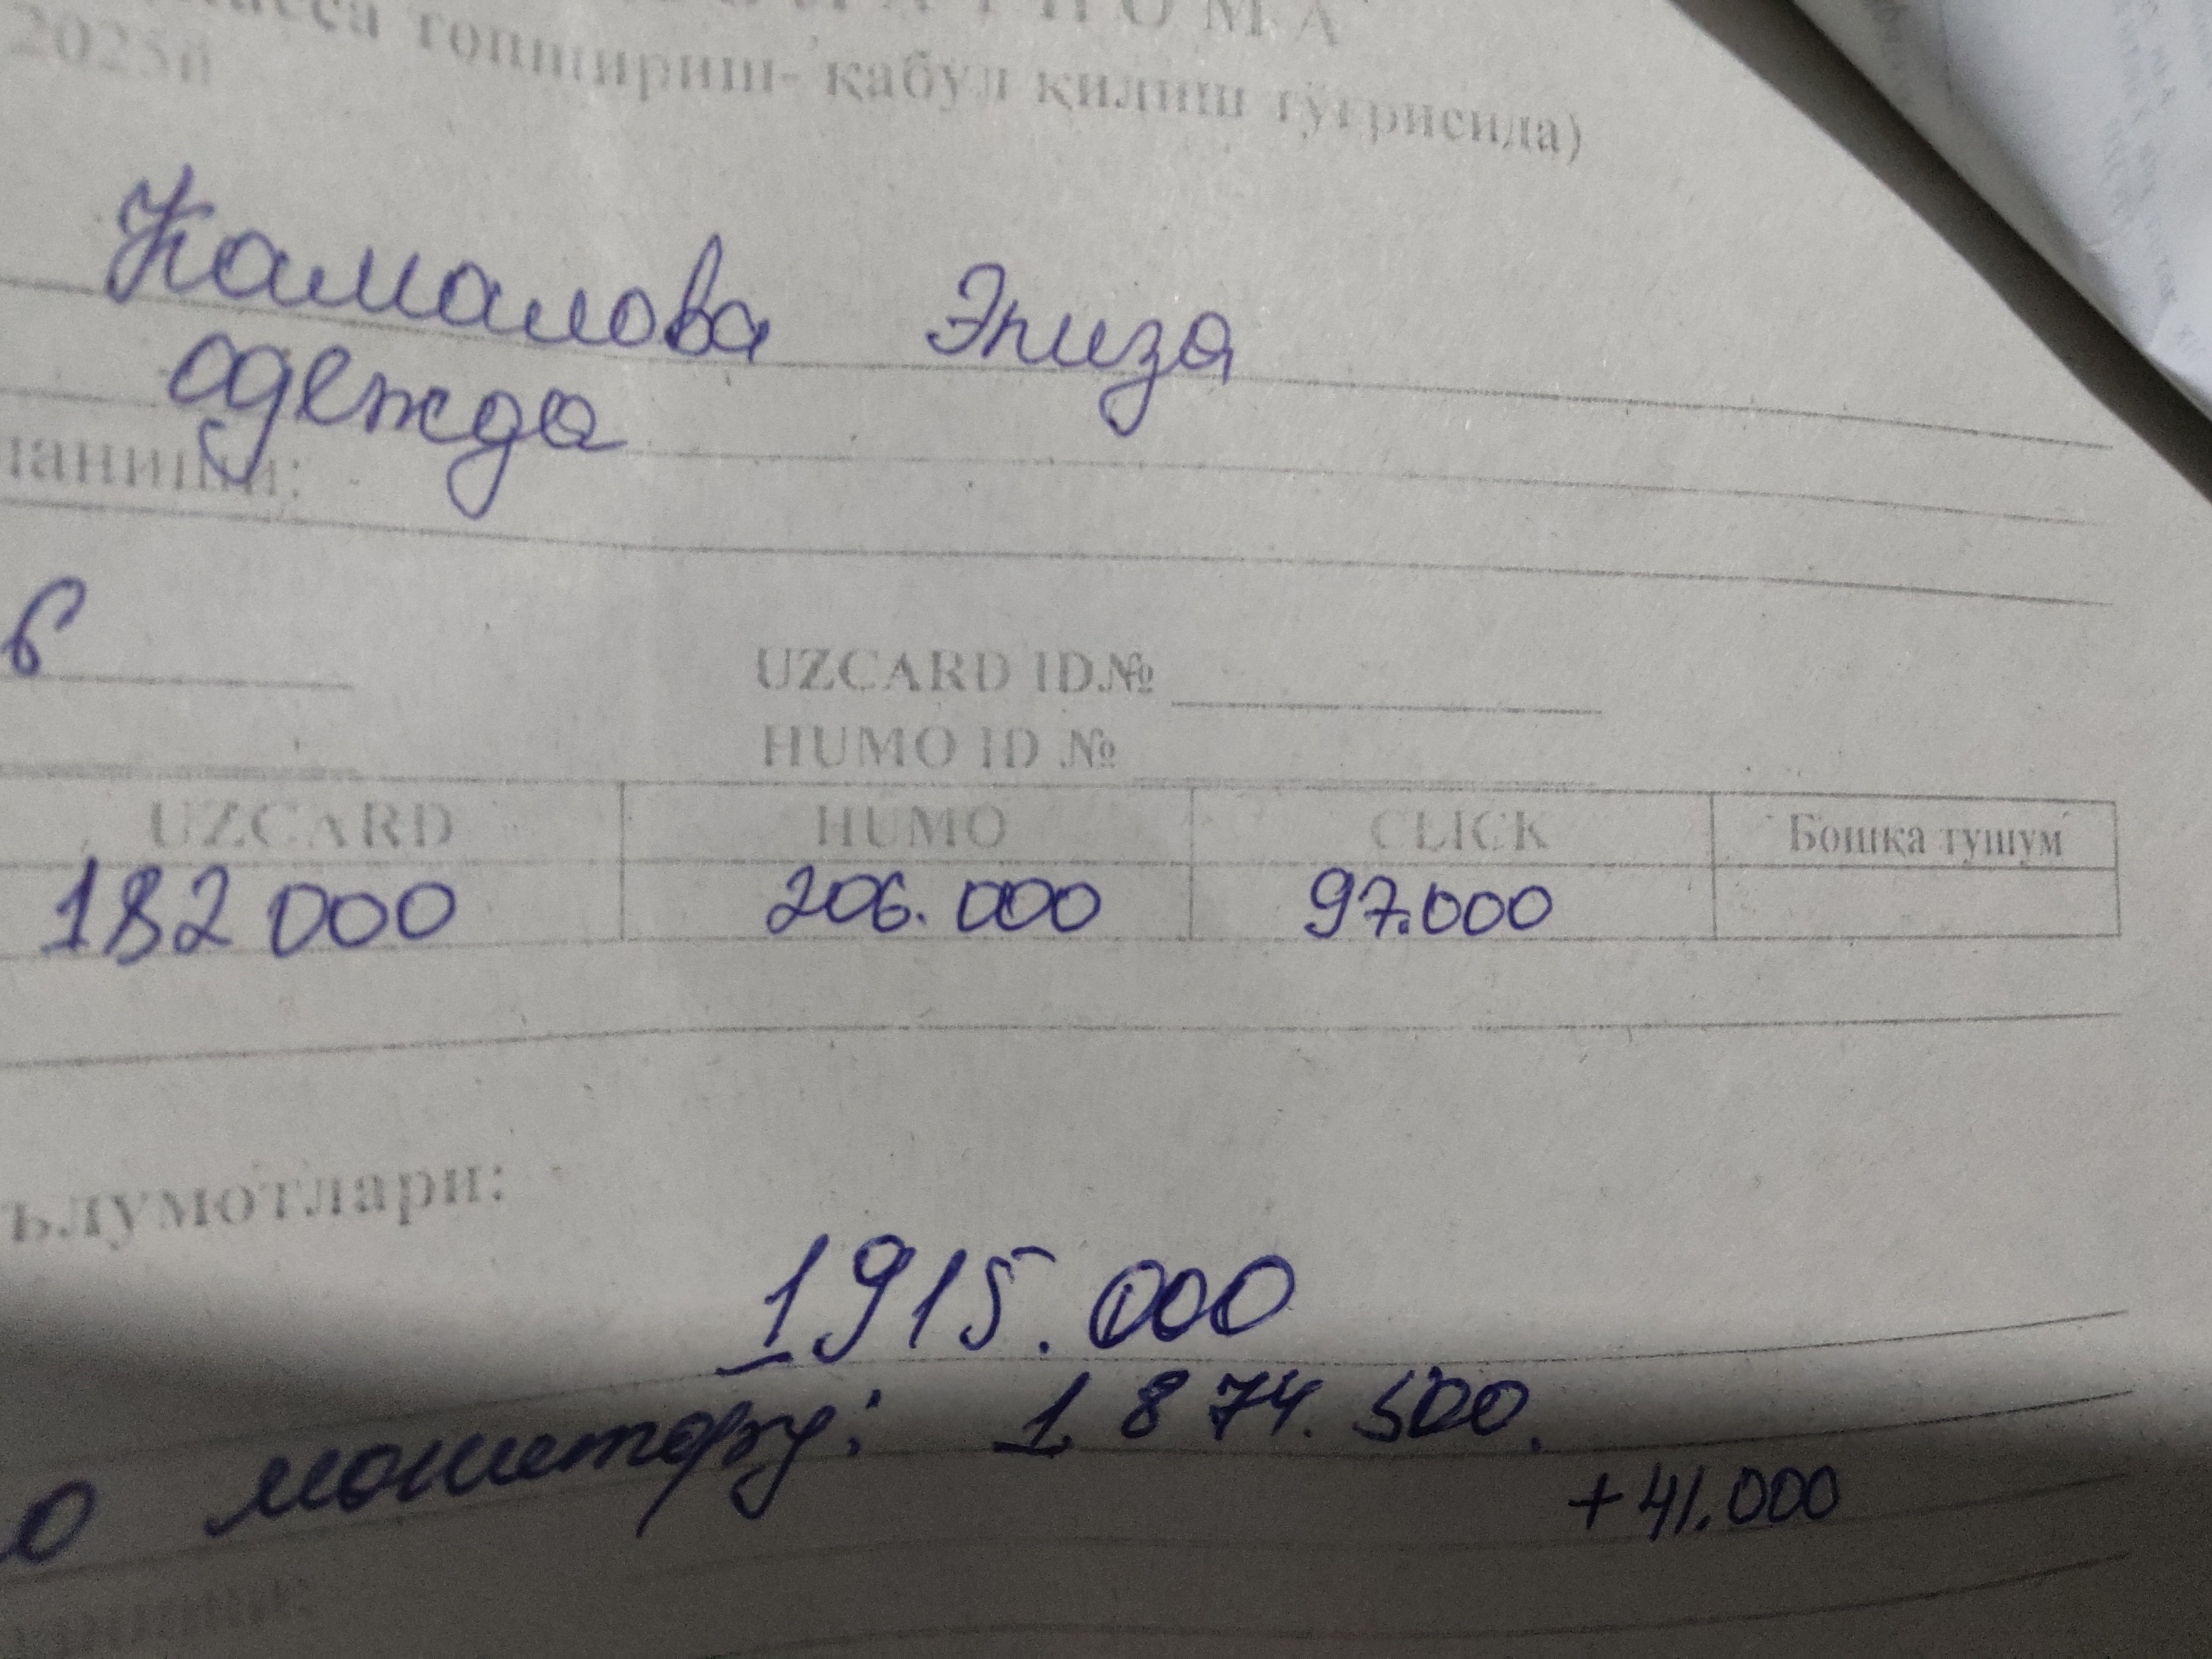 топшириш- қабул қилиш тўғрисида)
2025й
Камалова Элиза
одежда
6
UZCARD ID.№
HUMO ID №
UZCARD HUMO CLICK Бошқа тушум
182000 206.000 97.000
ълумотлари:
1915.000
о монитору: 1.874.500.
+41.000